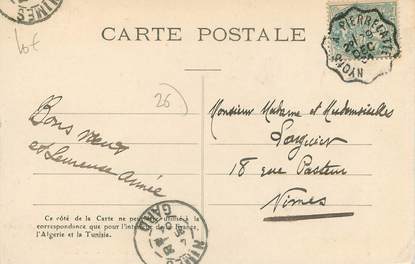 NIMES
CARTE POSTALE
PIERRELATTE
NYONS A
lot
26
Monsieur Madame et Mesdemoiselles
18 rue Pasteur
Nimes
Bons vœux
et heureuse année
Ce côté de la Carte ne peut être utilisé à la
correspondance que pour l'intérieur de la France,
l'Algérie et la Tunisie.
NIMES
GARD